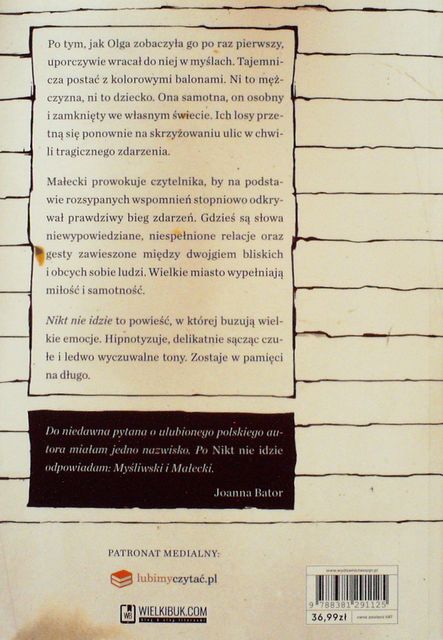 Po tym, jak Olga zobaczyła go po raz pierwszy,
uporczywie wracał do niej w myślach. Tajemni-
cza postać z kolorowymi balonami. Ni to męż-
czyzna, ni to dziecko. Ona samotna, on osobny
i zamknięty we własnym świecie. Ich losy prze-
tną się ponownie na skrzyżowaniu ulic w chwi-
li tragicznego zdarzenia.
Małecki prowokuje czytelnika, by na podsta-
wie rozsypanych wspomnień stopniowo odkry-
wał prawdziwy bieg zdarzeń. Gdzieś są słowa
niewypowiedziane, niespełnione relacje oraz
gesty zawieszone między dwojgiem bliskich
i obcych sobie ludzi. Wielkie miasto wypełniają
miłość i samotność.
Nikt nie idzie to powieść, w której buzują wiel-
kie emocje. Hipnotyzuje, delikatnie sącząc czu-
łe i ledwo wyczuwalne tony. Zostaje w pamięci
na długo.
Do niedawna pytana o ulubionego polskiego au-
tora miałam jedno nazwisko. Po Nikt nie idzie
odpowiadam: Myśliwski i Małecki.
Joanna Bator
PATRONAT MEDIALNY:
lubimyczytać.pl
WB
WIELKIBUK.COM
blog & vlog literacki
www.wydawnictwosqn.pl
9 788381 291125
36,99zł
cena zawiera VAT